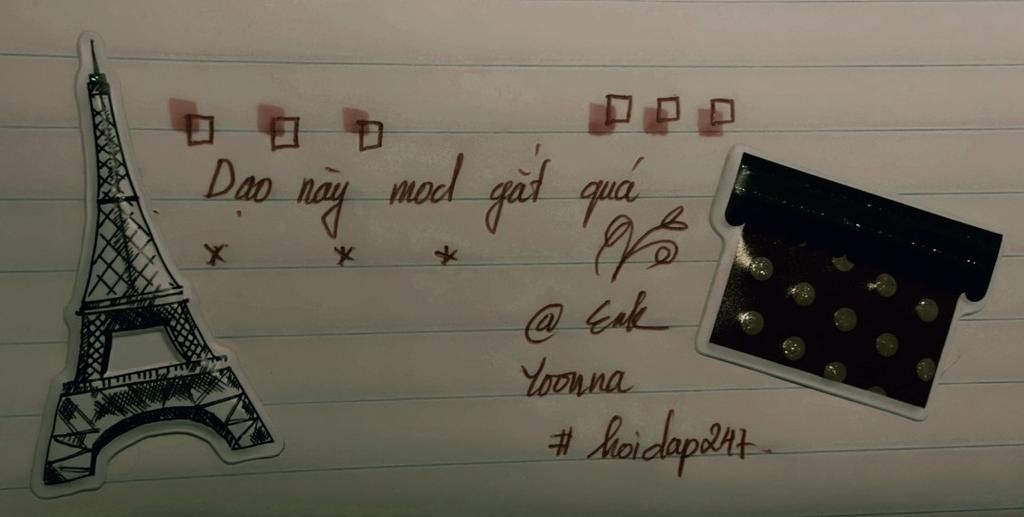 Dạo này mod gắt quá
@ Enk
Yoonna
# hoidap247.